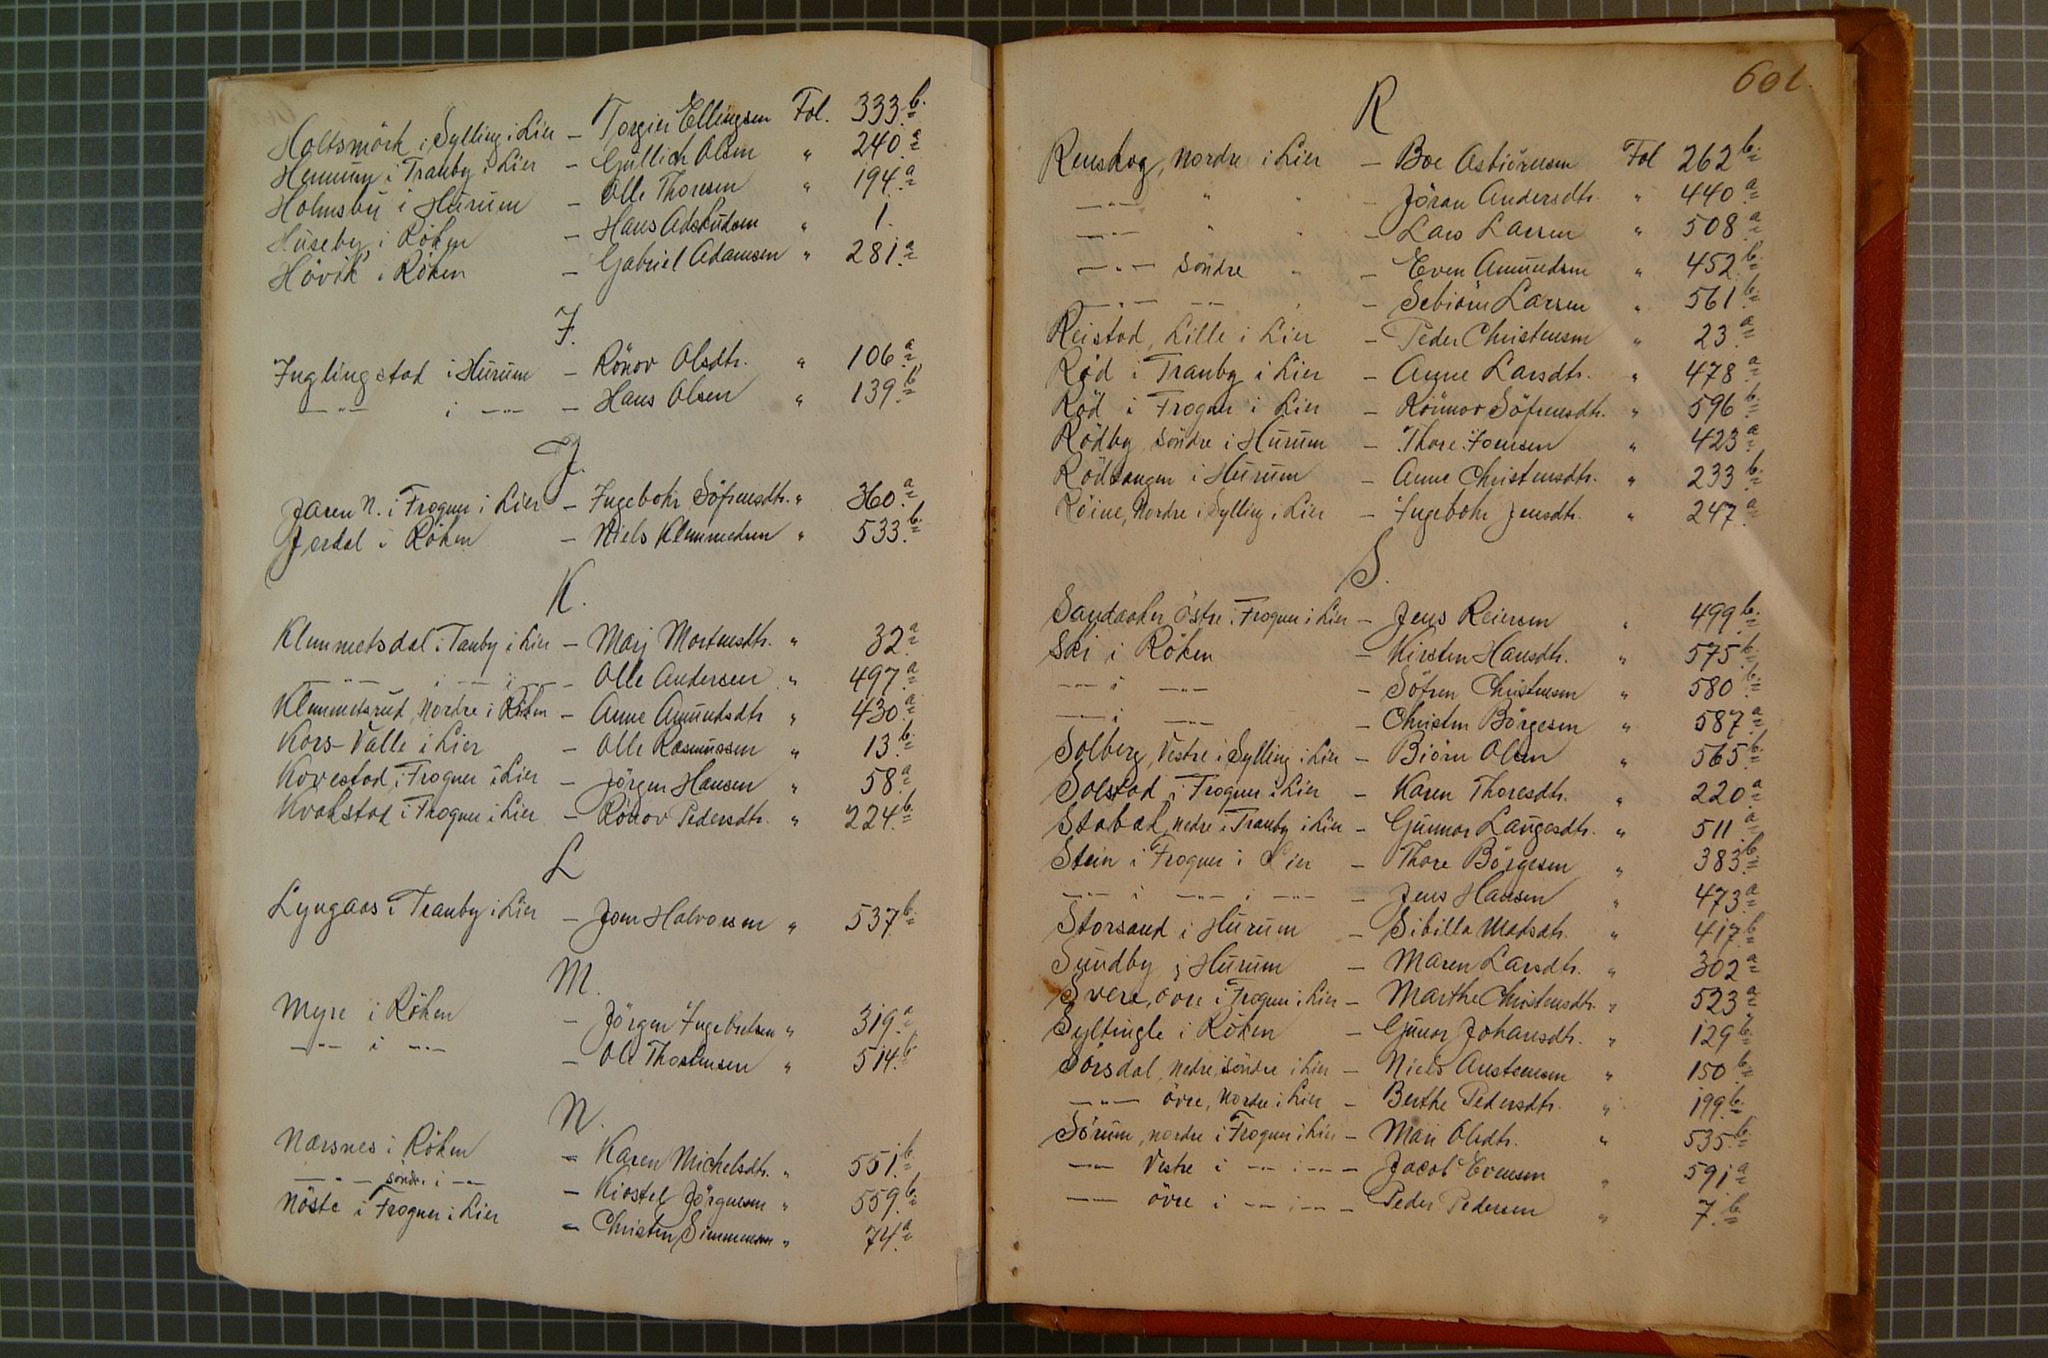 Holtsmörk i Sylling i Lier – Torgier Ellingsen Fol. 333.b.
Hennum i Tranby i Lier – Gullich Olsen " 240.a
Holmsbu i Hurum – Olle Thoresen " 194.a
Huseby i Röken – Hans Adskudsen " 1.
Hövik i Röken – Gabriel Adamsen " 281.a
I.
Inglingstad i Hurum – Rönov Olsdtr. " 106.a
—"— i —"— – Hans Olsen " 139.b
J.
Jaren N. i Frogner i Lier – Ingebohr Söfrensdtr. " 360.a
Jerdal i Röken – Niels Klemmedsen " 533.b.
K.
Klemmetsdal i Tanby i Lier – Marj Mortensdtr. " 32.a
—"— i —"— i —"— – Olle Andersen " 497.a
Klemmetsrud, Nordre i Röken – Anne Amundsdtr " 430.a
Kors-Valle i Lier – Olle Rasmussen " 13.b.
Kovestad i Frogner i Lier – Jörgen Hansen " 58.a
Kvakstad i Frogner i Lier – Rönov Pedersdtr. " 224.b.
L
Lyngaas i Tranby i Lier – Jon Halvorsen " 537.b.
M.
Myre i Röken – Jörgen Ingebretsen " 319.a
—"— i —"— – Ole Thostensen " 514.b.
N.
Nærsnes i Röken – Karen Michelsdtr. " 551.b.
—"— söndre i —"— – Kiostel Jörgensen " 559.b.
Nöste i Frogner i Lier – Christen Simmensen " 74.a
601.
R
Renskog, Nordre i Lier – Boe Asbiörnsen Fol 262.b.
—"— " " – Jöran Andersdtr. " 440.a
—"— " " – Lars Larsen " 508.a
—"— Söndre " – Even Amundsen " 452.b.
—"— —"— " – Sebiörn Larsen " 561.b.
Reistad, Lille i Lier – Peder Christensen " 23.a
Röd i Tranby i Lier – Anne Larsdtr. " 478.a
Röd i Frogner i Lier – Rönnov Söfrensdtr. " 596.b.
Rödby, söndre i Hurum – Thore Joensen " 423.a
Rödtangen i Hurum – Anne Christensdtr. " 233.b.
Röine, Nordre i Sylling i Lier – Ingebohr Jensdtr. " 247.a
S.
Sandaaker Östre i Frogner i Lier – Jens Reiersen " 499.b.
Ski i Röken – Kirsten Hansdtr. " 575.b.
—"— i —"— – Söfren Christensen " 580.b.
—"— i —"— – Christen Börgesen " 587.a
Solberg, Vestre i Sylling i Lier – Biörn Olsen " 565.b.
Solstad i Frogner i Lier – Karen Thoresdtr. " 220.a
Stabæk, nedre i Tranby i Lier – Gunnor Laugesdtr. " 511.a
Stein i Frogner i Lier – Thore Börgesen " 383.b.
—"— i —"— i —"— – Jens Hansen " 473.a
Storsand i Hurum – Sibilla Madsdtr. " 417.b
Sundby i Hurum – Maren Larsdtr. " 302.a
Svere, övre i Frogner i Lier – Marthe Christensdtr. " 523.a
Syltingle i Röken – Gunor Johansdtr. " 129.b.
Sörsdal, nedre, söndre i Lier – Niels Anstensen " 150.b.
—"— övre, Nordre i Lier – Berthe Pedersdtr. " 199.b.
Sörum, nordre i Frogner i Lier – Mari Olsdtr. " 535.b.
—"— Vestre i —"— i —"— – Jacob Evensen " 591.a
—"— övre i —"— i —"— – Peder Pedersen " 7.b.